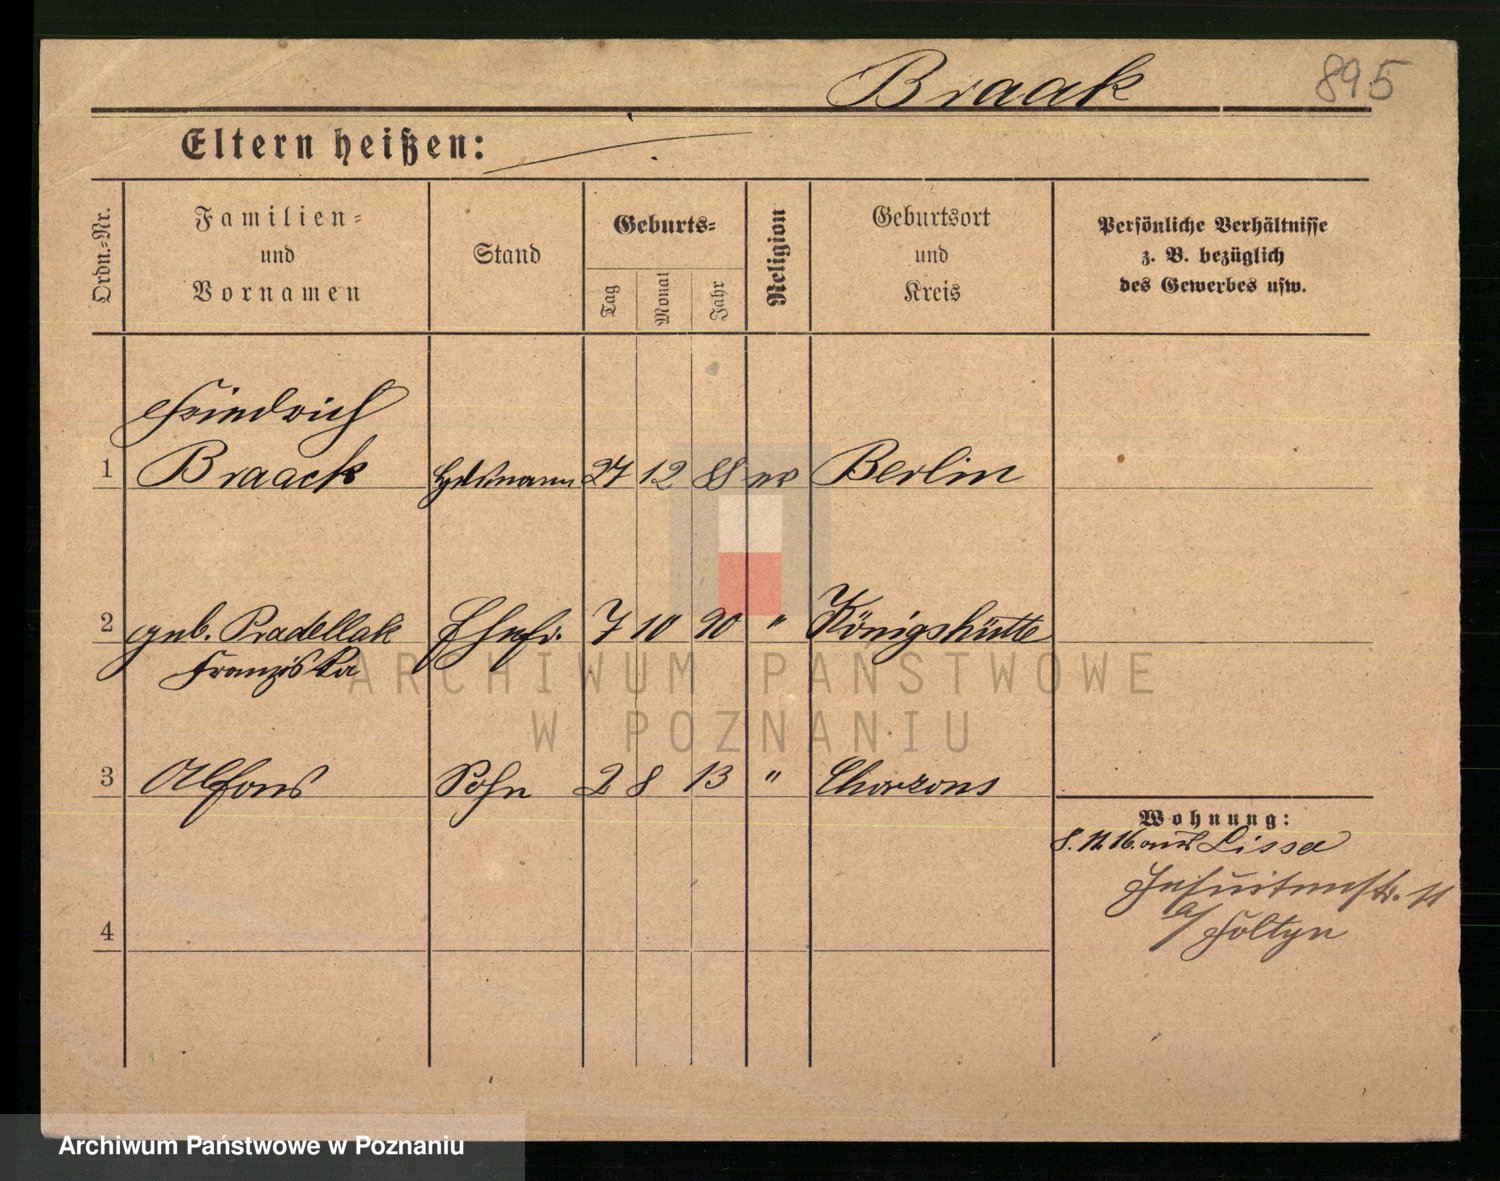 Braak 895
Eltern heißen:
Ordn.-Nr.
Familien-
und
Vornamen
Stand
Geburts-
Tag
Monat
Jahr
Religion
Geburtsort
und
Kreis
Persönliche Verhältnisse
z. B. bezüglich
des Gewerbes usw.
Friedrich
1 Braack 27 12 88 ev Berlin
2 geb. Pradellak Ehefr. 7 10 90 " Königshütte
Franziska
3 Alfons Sohn 2 8 13 "
Wohnung:
8. 11. 16. aus Lissa
Jesuitenstr. 11
b/ Foltyn
4
ARCHIWUM PAŃSTWOWE
W POZNANIU
Archiwum Państwowe w Poznaniu